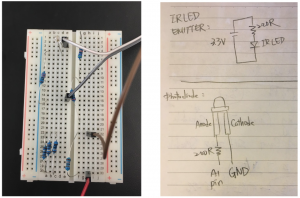 IRLED
EMITTER:
240R
IRLED
23V
Photodiode:
Anode
Cathode
240R
A1
pin
GND